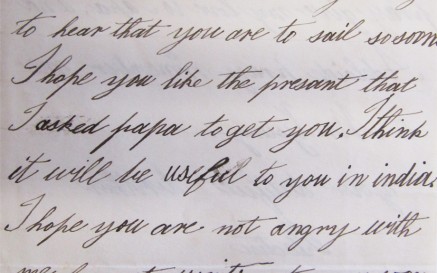 to hear that you are to sail so soon
I hope you like the presant that
I asked papa to get you. I think
it will be useful to you in india.
I hope you are not angry with
me